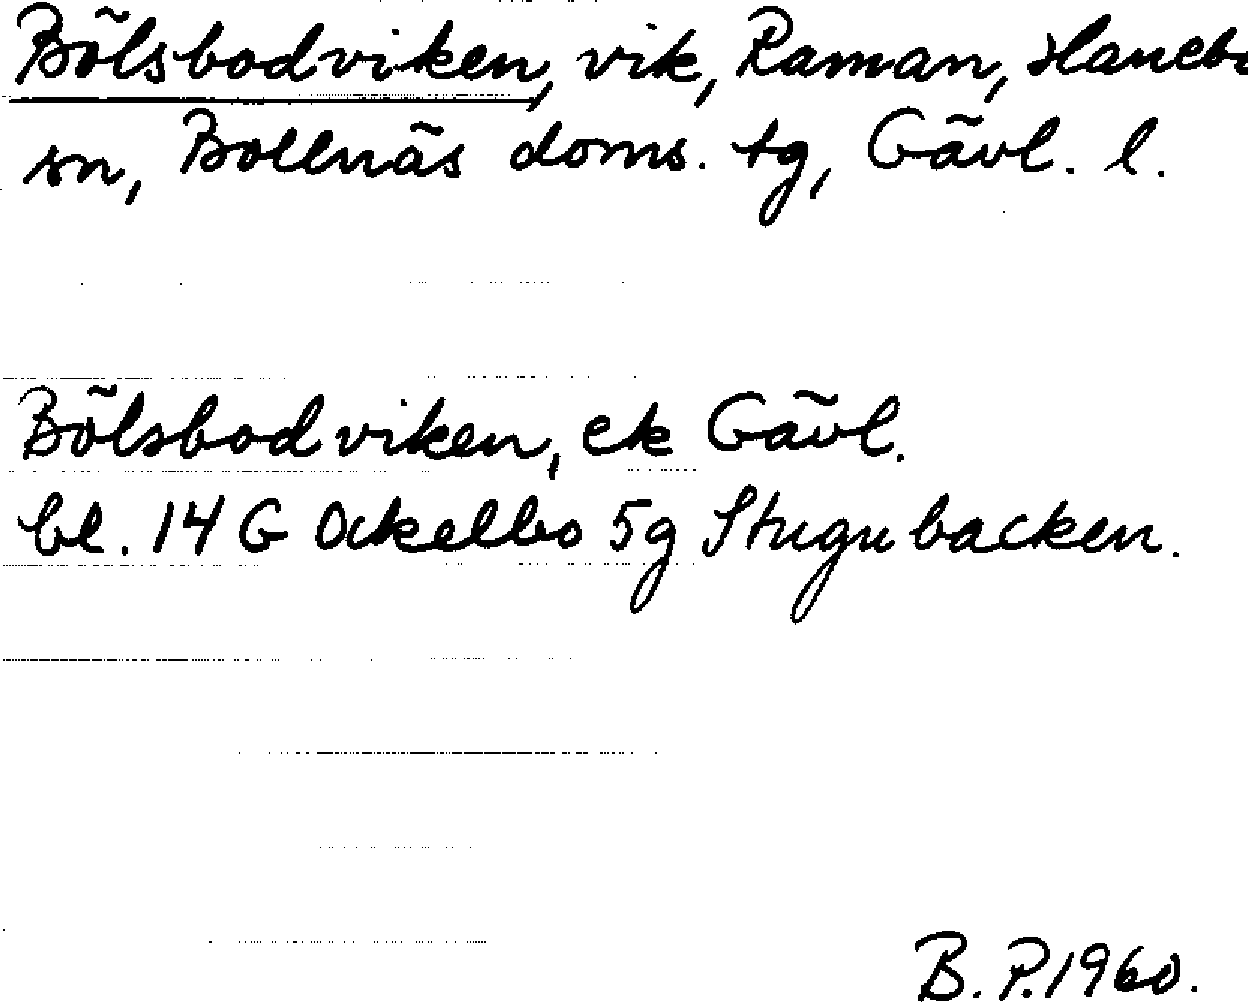 Bölsbodviken, vik, Raman, Hanebo
sn, Bollnäs doms. tg, Gävl. l.
Bölsbodviken, ek Gävl.
bl. 14 G Ockelbo 5g Stugubacken.
B. P. 1960.